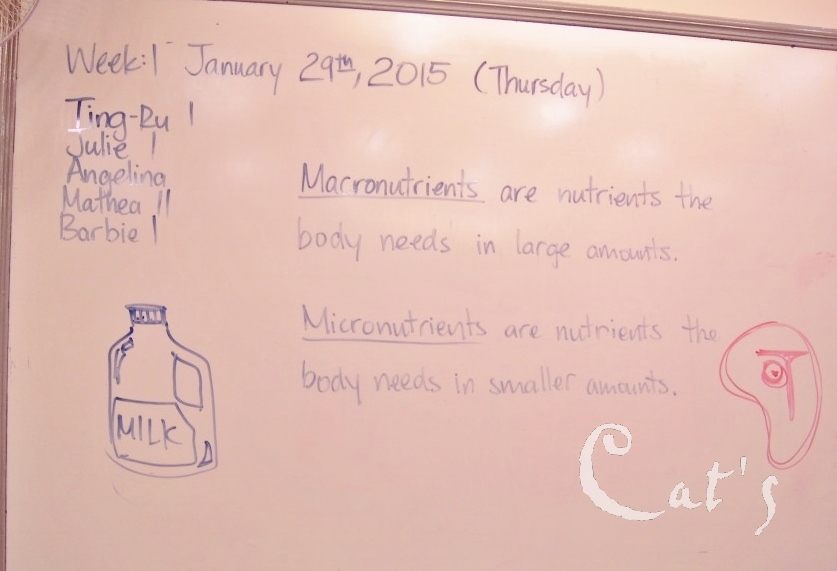 Week:1 January 29th, 2015 (Thursday)
Ting-Ru |
Julie |
Angelina
Mathea ||
Barbie |
Macronutrients are nutrients the
body needs in large amounts.
Micronutrients are nutrients the
body needs in smaller amounts.
MILK
Cat's